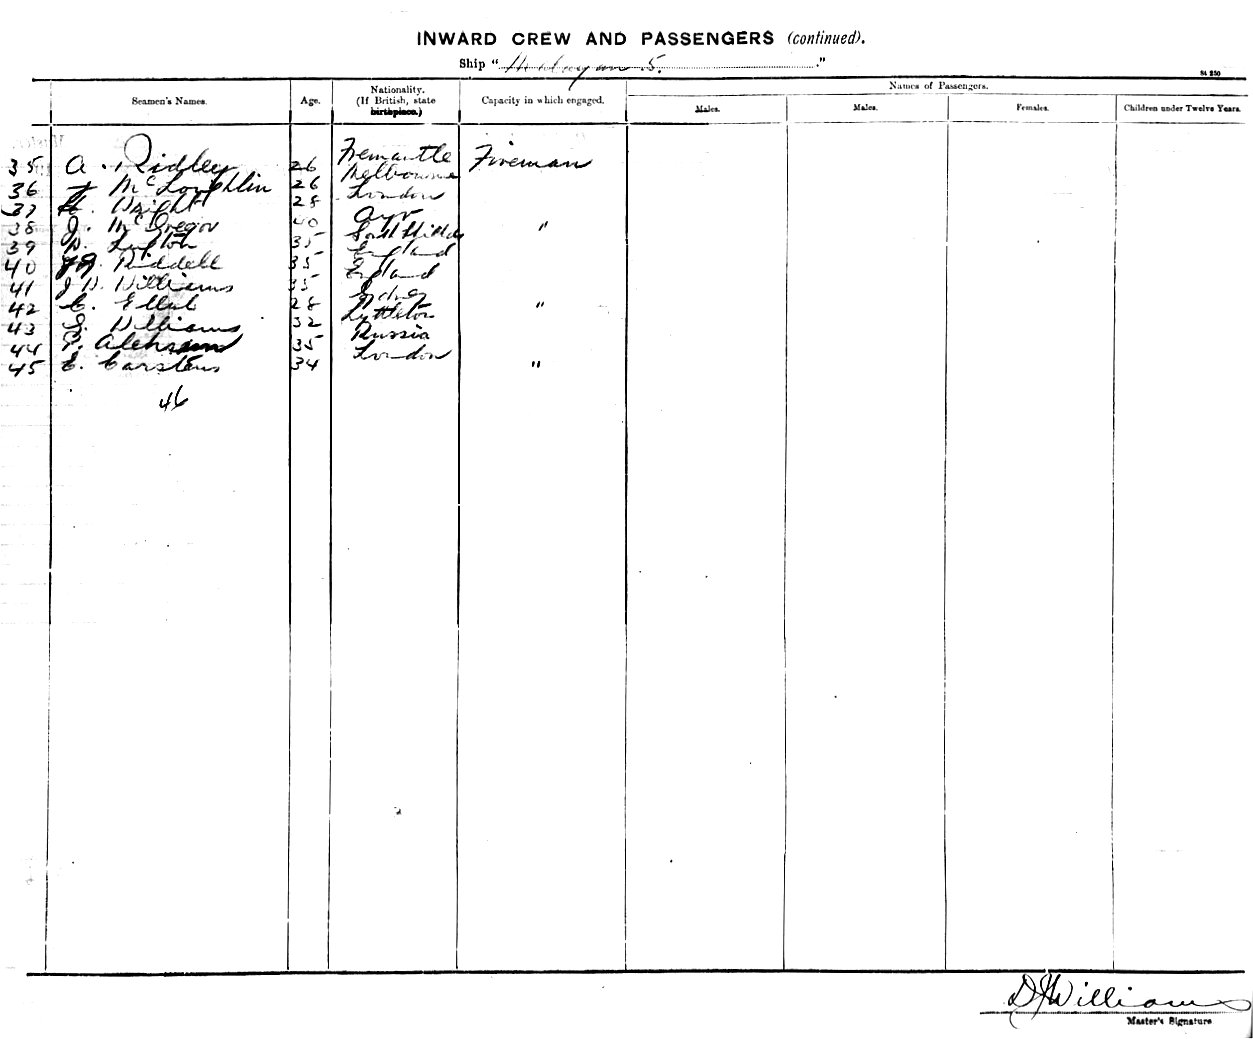 INWARD CREW AND PASSENGERS (continued).
Ship " 5. "
84 250
Seamen's Names. Age. Nationality. (If British, state birthplace.) Capacity in which engaged. Names of Passengers.
Males. Males. Females. Children under Twelve Years.
35 A. Ridley 26 Fremantle Fireman
36 McLoughlin 26 Melbourne
37 H. Wright 28 London
38 J. McGregor 40 Ayr "
39 Lupton 35 South Shields
40 Riddell 35 England
41 J W. Williams 35 England
42 C. Ellis 28 Sydney "
43 Williams 32 Lyttleton
44 35 Russia
45 C. Carstens 34 London "
46
D Williams
Master's Signature